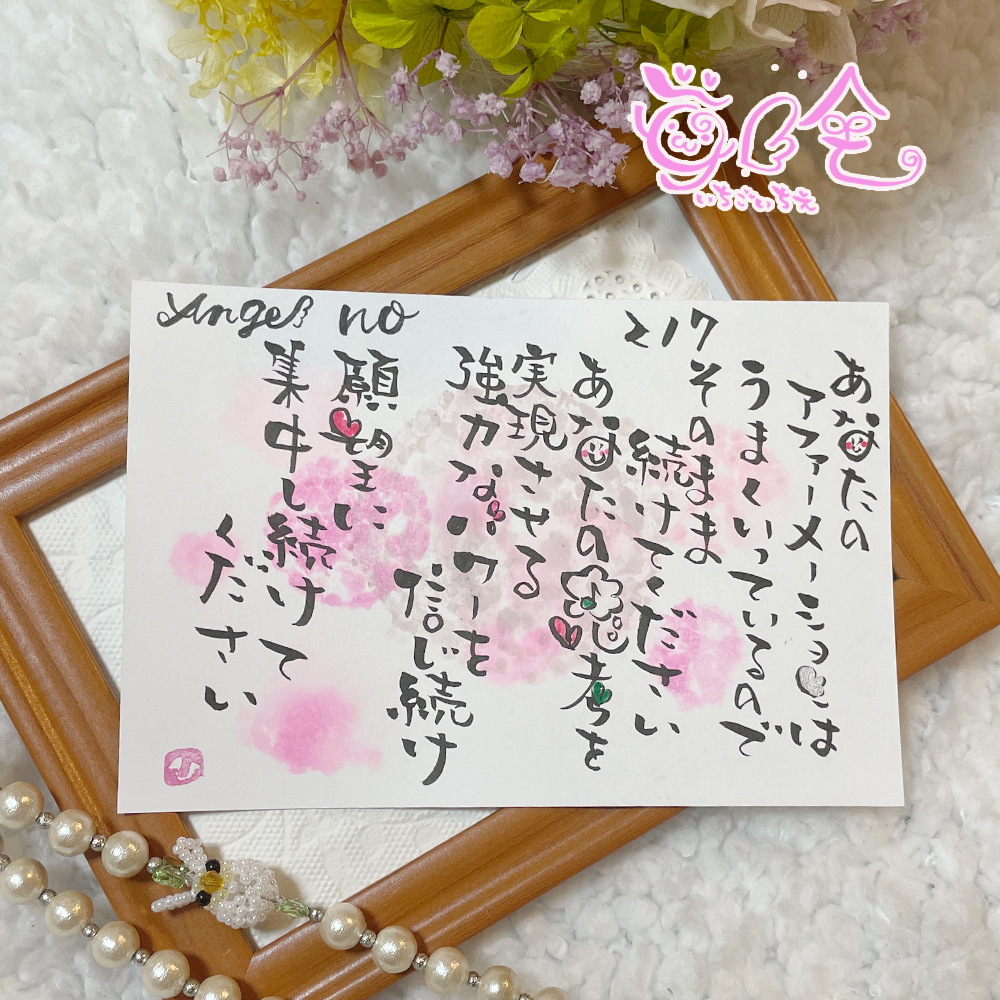 Angel no 217
あなたの
アファーメーションは
うまくいっているので
そのまま
続けてください
あなたの思考を
実現させる
強力なパワーを
信じ続け
願望に
集中し続けて
ください
いちごいちえ